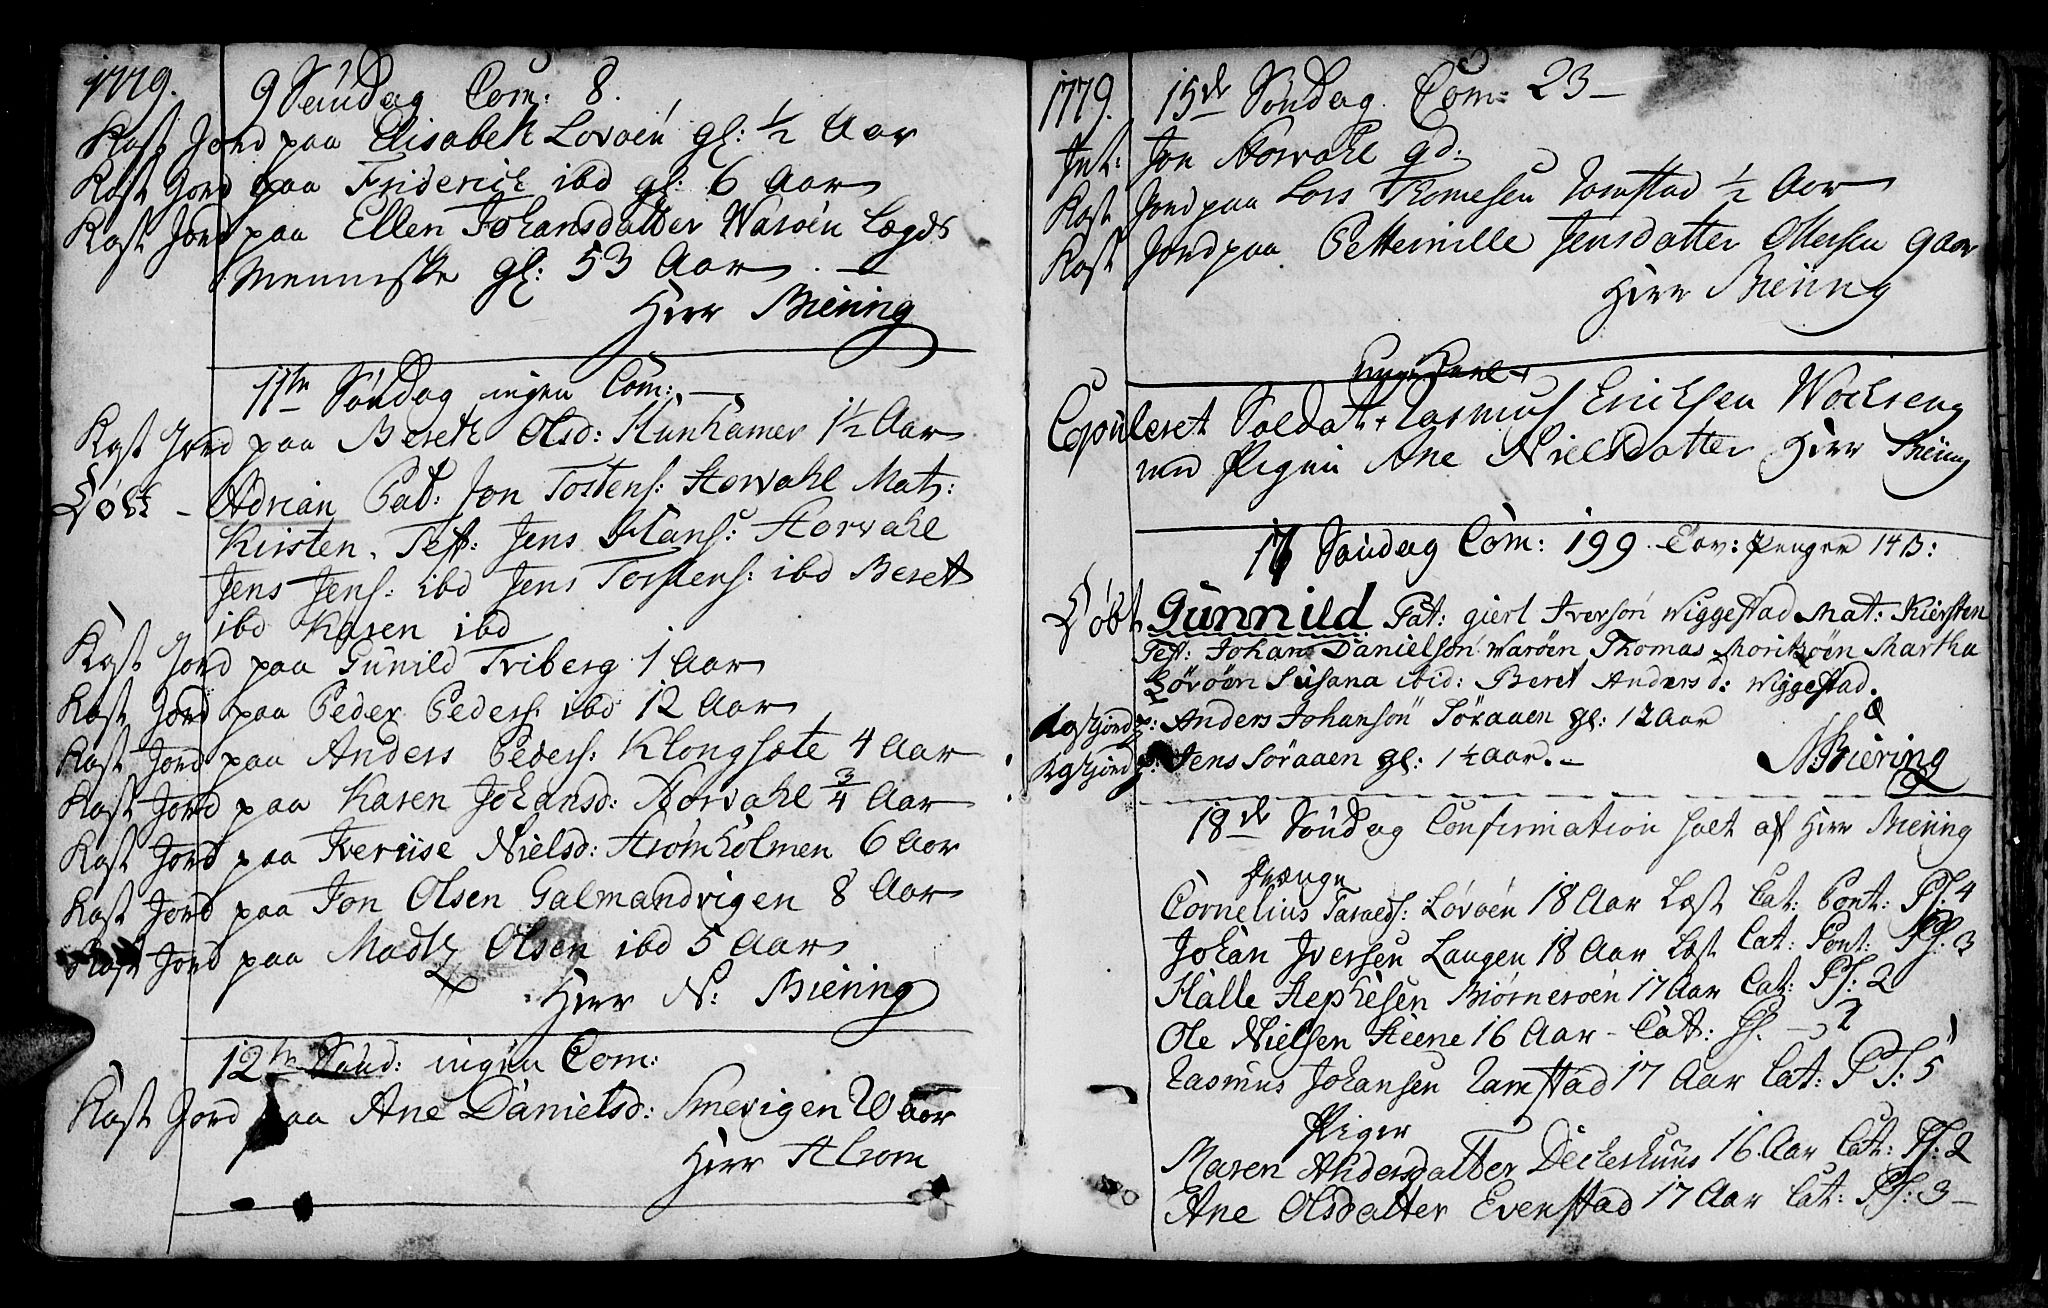 1779. 9 Søndag Com: 8.
Kast Jord paa Elisabeth Lovøen gl: ½ Aar
Kast Jord paa Friderich ibd gl: 6 Aar
Kast Jord paa Ellen Johansdatter Warøen Lægds
Menniske gl: 53 Aar. —
Herr Biering
11te Søndag ingen Com: —
Kast Jord paa Bereth Olsd: Kunhamer 1½ Aar
Døbt - Adrian Pat: Jon Tostens: Storvahl Mat:
Kirsten. Test: Jens Hans: Storvahl
Jens Jens: ibd Jens Torstens: ibd Beret
ibd Karen ibd
Kast Jord paa Gunild Triberg 1 Aar
Kast Jord paa Peder Peders: ibd 12 Aar
Kast Jord paa Anders Peders: Klongsøte 4 Aar
Kast Jord paa Karen Johansd: Storvahl ¾ Aar
Kast Jord paa Iveriise Nielsd: Strømholmen 6 Aar
Kast Jord paa Jon Olsen Galmandvigen 8 Aar
Kast Jord paa Madtz Olsen ibd 5 Aar
Herr N: Biering
12te Sønd: ingen Com:
Kast Jord paa Ane Danielsd: Smevigen 20 Aar
Herr Strom
1779. 15de Søndag. Com: 23 —
Int: Jon Storvahl gd.
Kast Jord paa Lars Thomesen Ramstad ½ Aar
Kast Jord paa Petternille Jensdatter Ottersen 9 aar
Herr Biering
Copuleret Soldat + Rasmus Ericksen Wockseng
med Pigen Ane Nielsdatter Herr Biering
17 Søndag Com: 199. Tav: Penger 14 B:
Døbt Gunnild Pat: gierl Iverson Wiggestad Mat: Kiersten
Test: Johan Danielson Warøen Thomas Moritzøen Martha
Sørøen Susana ibid: Beret Andersd: Wiggestad.
Kastjord p: Anders Johanson Søraaen gl: 12 Aar
Kastjord p: Jens Søraaen gl: 1½ Aar. —
N: Biering
18de Søndag Confirmation holt af Herr Biering
Drænge
Cornelius Taralds: Lovøen 18 Aar Læst Cat: Pont: Ps: 4
Johan Iversen Laugen 18 Aar Læst Cat: Pont: Ps: 3
Halle Stephesen Biørnerøen 17 Aar Cat: Ps: 2
Ole Nielsen Steene 16 Aar - Cat: Ps. — 2
Rasmus Johansen Ramstad 17 Aar Cat: Ps: 5
Piger
Maren Andersdatter Deckerhuus 16 Aar Cat: Ps: 2
Ane Olsdatter Evenstad 17 Aar Cat: Ps: 3 —